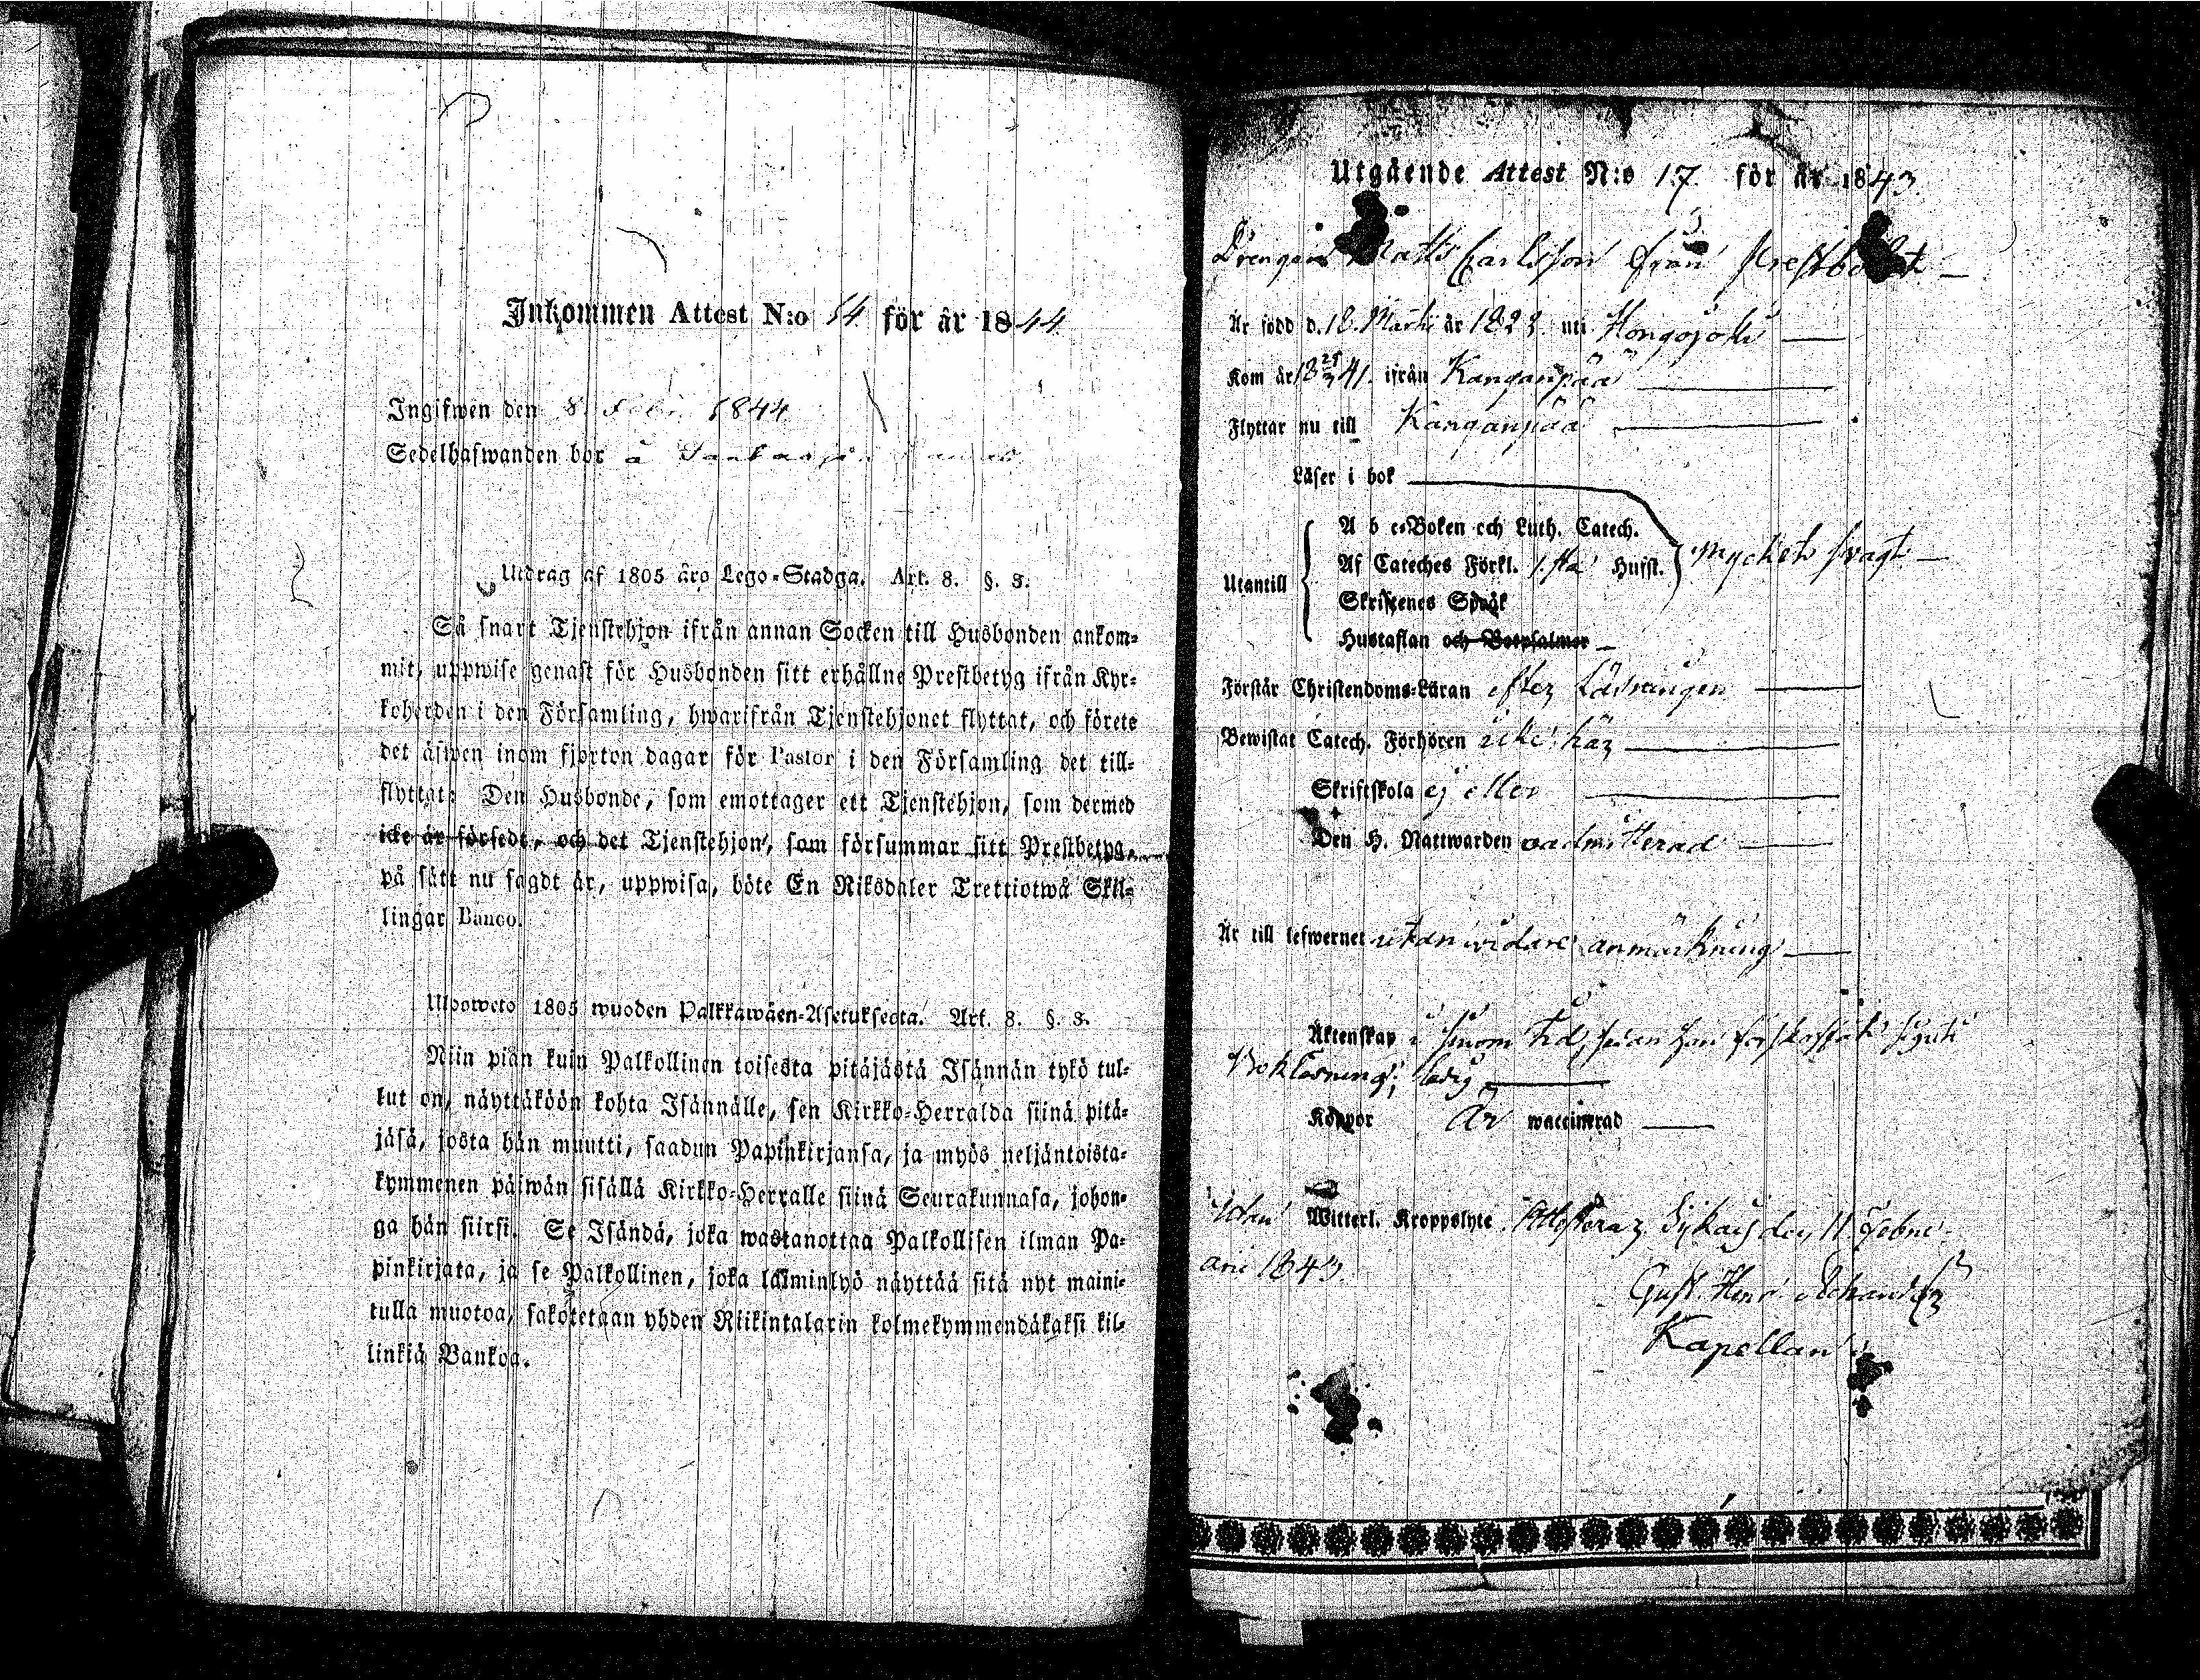 Inkommen Attest N:o 54 för år 1844
Ingifwen den 8 Febr. 1844
Sedelhafwanden bor å
Utdrag af 1805 års Lego-Stadga. Art. 8. §. 3.
Så snart Tjenstehjon ifrån annan Socken till Husbonden ankom-
mit, uppwise genast för Husbonden sitt erhållne Prestbetyg ifrån Kyr-
koherden i den Församling, hwarifrån Tjenstehjonet flyttat, och förete
det äfwen inom fjorton dagar för Pastor i den Församling det till-
flyttat: Den Husbonde, som emottager ett Tjenstehjon, som dermed
icke är försedt, och det Tjenstehjon, som försummar sitt Prestbetyg,
på sätt nu sagdt är, uppwisa, böte En Riksdaler Trettiotwå Skil-
lingar Banco.
Ulosweto 1805 wuoden Palkkawäen-Asetuksesta. Art. 8. §. 3.
Niin pian kuin Palkollinen toisesta pitäjästä Isännän tykö tul-
lut on, näyttäköön kohta Isännälle, sen Kirkko-Herralda siinä pitä-
jäsä, josta hän muutti, saadun Papinkirjansa, ja myös neljäntoista-
kymmenen päiwän sisällä Kirkko-Herralle siinä Seurakunnasa, johon-
ga hän siirsi. Se Isändä, joka wastanottaa Palkollisen ilman Pa-
pinkirjata, ja se Palkollinen, joka laiminlyö näyttää sitä nyt maini-
tulla muotoa, sakotetaan yhden Riikintalarin kolmekymmendäkaksi kil-
linkiä Bankoa.
Utgående Attest N:o 17 för år 1843
Drengen Matts Carlsson från
Är född d. 18 Martii år 1823 uti Hongojoki
Kom år 18 25/3 41. ifrån Kanganpää
Flyttar nu till Kanganpää
Läser i bok
A b c-Boken och Luth. Catech.
Utantill Af Cateches Förkl. 1.sta Hufst. mycket svagt
Skriftenes Språk
Hustaflan och Botpsalmer
Förstår Christendoms-Läran efter läsningen
Bewistat Catech. Förhören icke här
Skriftskola ej eller
Den H. Nattwarden oadmitterad
Är till lefwernet utan widare anmärkning
Äktenskap i sinom tid, sedan han förskaffat sig
Bokläsning; ledig
Koppor Är waccinerad
Utan Witterl. Kroppslyte. Attesterar, den 11 Febru-
arii 1843.
Gust. Henr.
Kapellan